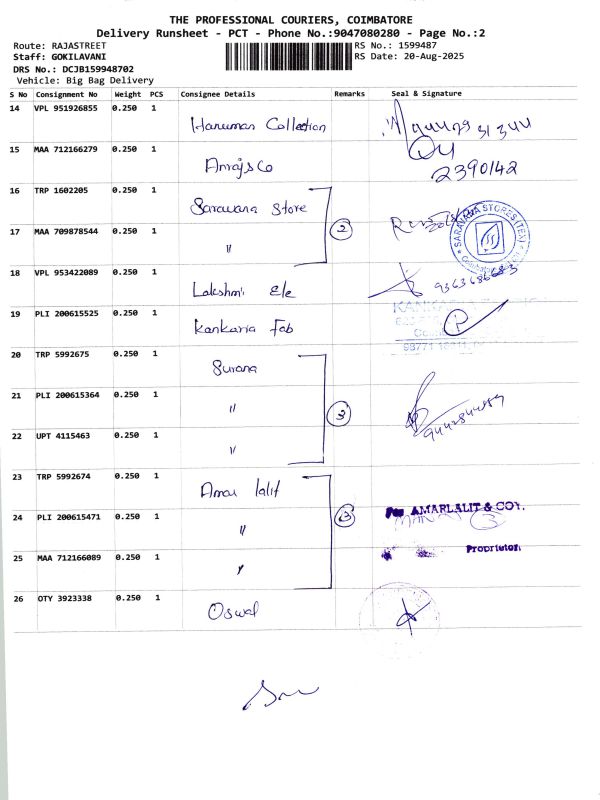 THE PROFESSIONAL COURIERS, COIMBATORE
Delivery Runsheet - PCT - Phone No.:9047080280 - Page No.:2
Route: RAJASTREET RS No.: 1599487
Staff: GOKILAVANI RS Date: 20-Aug-2025
DRS No.: DCJB159948702
Vehicle: Big Bag Delivery
S No Consignment No Weight PCS Consignee Details Remarks Seal & Signature
14 VPL 951926855 0.250 1 Hanuman Collection
15 MAA 712166279 0.250 1 2390142
16 TRP 1602205 0.250 1 Sarawana Store
17 MAA 709878544 0.250 1 〃 2 SARAVANA STORES (TEX)
18 VPL 953422089 0.250 1 Lakshmi Ele 9363686683
19 PLI 200615525 0.250 1 Kankaria Fab
20 TRP 5992675 0.250 1 Surana
21 PLI 200615364 0.250 1 〃 3
22 UPT 4115463 0.250 1 〃
23 TRP 5992674 0.250 1 Amar lalit
24 PLI 200615471 0.250 1 〃 3 For AMARLALIT & COY. 3
25 MAA 712166089 0.250 1 〃 Proprietor
26 OTY 3923338 0.250 1 Oswal